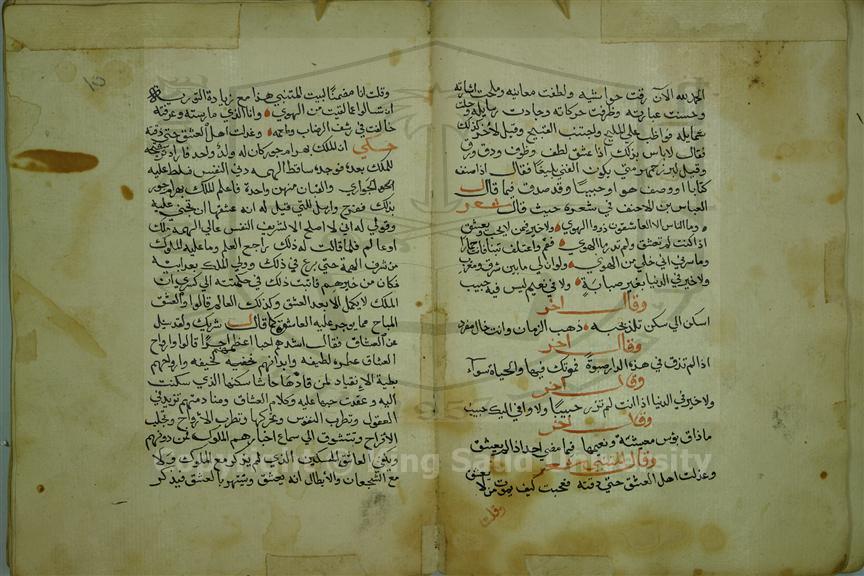 الحمد لله الآن رقت حواشيه ولطفت معانيه وملحت اشارته
وحسنت عبارته وظرفت حركاته وجادت رسايله وحلت
شمايله فواظب على المليح واجتنب القبيح وقيل لآخر كذلك
فقال لا باس بذلك اذا عشق لطف وظرف ودق ورق
وقيل لبزرجمهر متى يكون الفتى بليغا فقال اذا صنف
كتابا او وصف هوا او حبيبا وقد صدق فيما قال
العباس بن الاحنف في شعره حيث قال شعر
وما الناس الا العاشقون ذوو الهوى ولا خير فيمن لا يحب ويعشق
اذا كنت لم تعشق ولم تدر ما الهوى فقم واعتلف تبنا فانت حمار
وما سرني اني خلي من الهوى ولو ان لي ما بين شرق ومغرب
ولا خير في الدنيا بغير صبابة ولا في نعيم ليس فيه حبيب
وقال اخر
اسكن الى سكن تلذ بحبه ذهب الزمان وانت خال مفرد
وقال اخر
اذا لم تذق في هذه الدار صبوة فموتك فيها والحياة سواء
وقال اخر
ولا خير في الدنيا اذا انت لم تزر حبيبا ولا وافى اليك حبيب
وقال اخر
ما ذاق بؤس معيشة ونعيمها فيما مضى احد اذا لم يعشق
وقال المتنبي شعر
وعذلت اهل العشق حتى ذقته فعجبت كيف يموت من لا يعشق
وقلت
وقلت انا مضمنا لبيت المتنبي هذا مع زيادة التورية
ان تسالوا عما لقيت من الهوى وانا الذي مارسته وعرفته
خالفت في رشف الرضاب وعذلت اهل العشق حتى ذقته
حكي ان الملك بهرام جور كان له ولد واحد فاراد ترشيحه
للملك بعده فوجده ساقط الهمه دني النفس فسلط عليه
الجواري والقيان منهن واحدة فاعلم الملك بهرام جور
بذلك ففرح وارسل للتي قيل له انه عشقها ان تجني عليه
وقولي له اني لا اصلح الا لشريف النفس عالي الهمه ملك
او عالم فلما قالت له ذلك راجع العلم وما عليه الملوك
من شرف الهمة حتى برع في ذلك وولي الملك بعد ابيه
فكان من خيرهم فاثبت ذلك في حكمته الى كسرى ان
الملك لا يكمل الا بعد العشق وكذلك العالم قالوا والعشق
المباح مما يوجر عليه العاشق كما قال شريك وقد سيل
عن العشاق فقال اشدهم حبا اعظمهم اجرا قالوا وارواح
العشاق عطره لطيفه وابدانهم خفيه نحيفه وارواحهم
بطية الانقياد لمن قادها حاشا سكنها الذي سكنت
اليه وعقدت حبها عليه وكلام العشاق ومنادمتهم تزيد في
العقول وتطرب النفوس وتحركها وتطرب الارواح وتجلب
الافراح وتتشوق الى سماع اخبارهم الملوك فمن دونهم
ويكفى العاشق المسكين الذي لم يذكر مع الملوك ولا
مع الشجعان والابطال انه يعشق ويشتهر بالعشق فيذكر